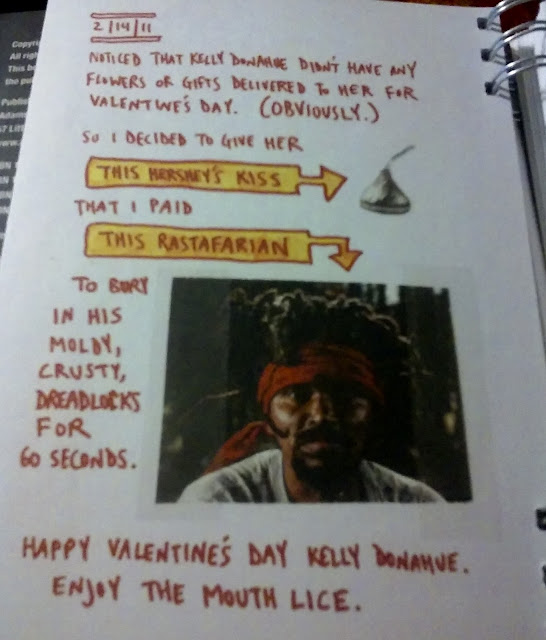 2/14/11
NOTICED THAT KELLY DONAHUE DIDN'T HAVE ANY
FLOWERS OR GIFTS DELIVERED TO HER FOR
VALENTINE'S DAY. (OBVIOUSLY.)
SO I DECIDED TO GIVE HER
THIS HERSHEY'S KISS
THAT I PAID
THIS RASTAFARIAN
TO BURY
IN HIS
MOLDY,
CRUSTY,
DREADLOCKS
FOR
60 SECONDS.
HAPPY VALENTINE'S DAY KELLY DONAHUE.
ENJOY THE MOUTH LICE.
All
This
Publis
Adams
57 Litt
www.